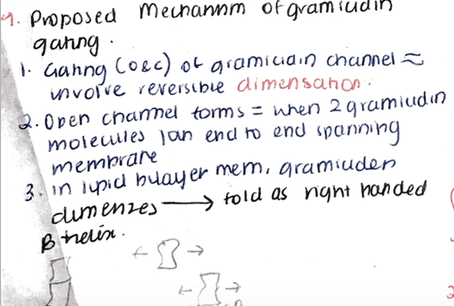 9. Proposed Mechanism of gramicidin
gating.
1. Gating (o&c) of gramicidin channel ≈
involve reversible dimensation.
2. Open channel forms = when 2 gramicidin
molecules join end to end spanning
membrane
3. in lipid bilayer mem, gramiciden
dimenzes → fold as right handed
β helix.